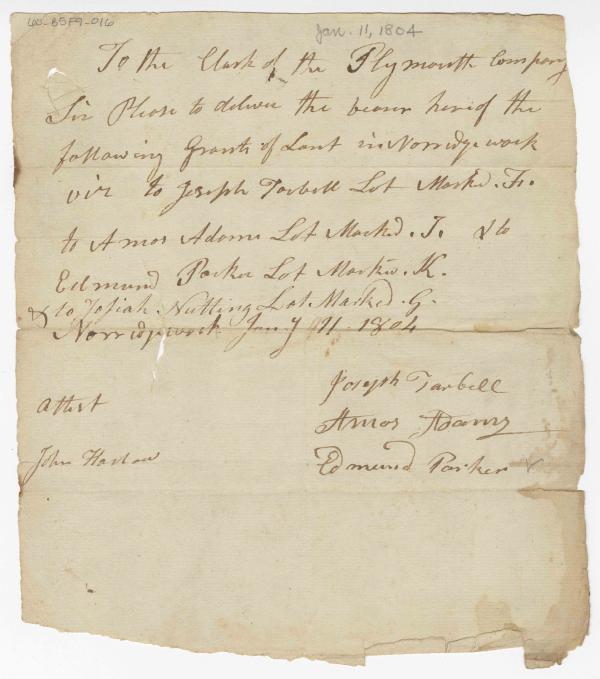 60-B5F9-016
Jan. 11, 1804
To the Clark of the Plymouth Company
Sir Please to deliver the bearer hereof the
following Grants of Lant in Norridgewock
viz to Joseph Tarbell Lot Marked. F.
to Amos Adams Lot Marked. J. & to
Edmund Parker Lot Marked. K.
& to Josiah Nutting Lot Marked. G.
Norridgewock Jany 11 1804
Joseph Tarbell
Attest
Amos Adams
John Harlow
Edmund Parker